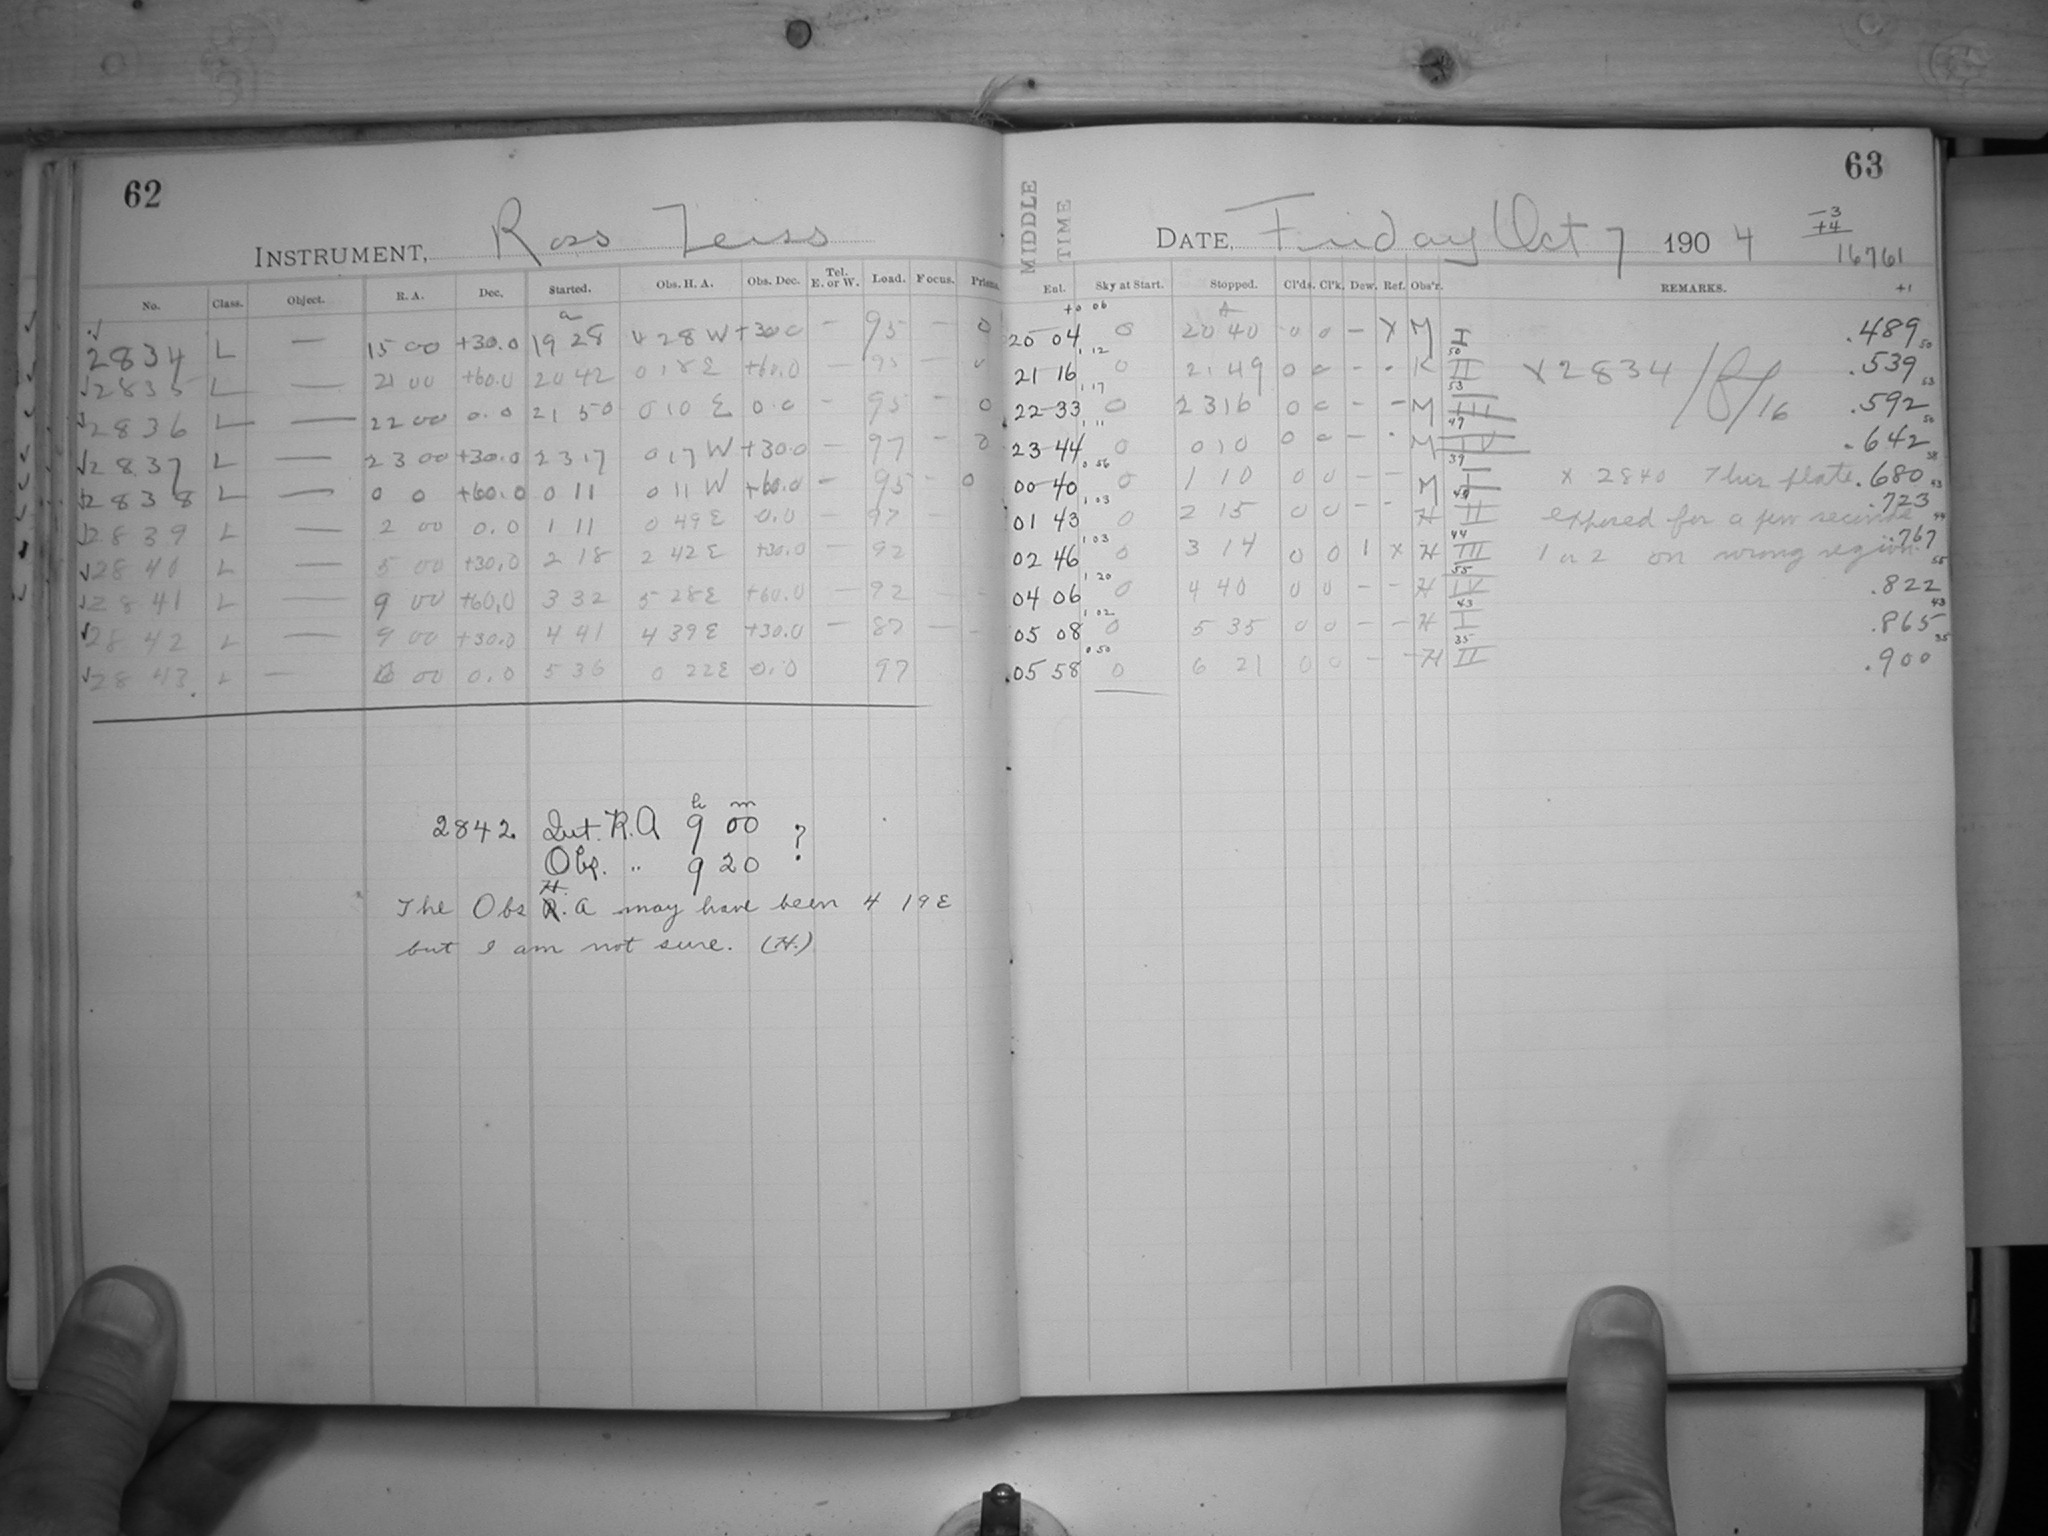 62
INSTRUMENT, Ross Zeiss
No. Class. Object. R. A. Dec. Started. Obs. H. A. Obs. Dec. Tel. E. or W. Load. Focus. Prisms.
2834 L — 15 00 +30.0 19 28 4 28 W +30.0 — 95 — 0
2835 L — 21 00 +60.0 20 42 0 18 E +60.0 — 95 — 0
2836 L — 22 00 0.0 21 50 0 10 E 0.0 — 95 — 0
2837 L — 23 00 +30.0 23 17 0 17 W +30.0 — 97 — 0
2838 L — 0 0 +60.0 0 11 0 11 W +60.0 — 95 — 0
2839 L — 2 00 0.0 1 11 0 49 E 0.0 — 97 —
2840 L — 5 00 +30.0 2 18 2 42 E +30.0 — 92
2841 L — 9 00 +60.0 3 32 5 28 E +60.0 — 92 —
2842 L — 9 00 +30.0 4 41 4 39 E +30.0 — 87 — -
2843 L — 6 00 0.0 5 36 0 22 E 0.0 97
2842 Int. R.A 9 h 00 m ?
Obs. " 9 20
The Obs H.A may have been 4 19 E
but I am not sure. (H.)
63
MIDDLE TIME
DATE, Friday Oct 7 1904
-3
+4
16761
Ent. Sky at Start. Stopped. Cl'ds. Cl'k. Dew. Ref. Obs'r. REMARKS. +1
+0 06
20 04 0 20 40 0 0 – X M I .489 50
1 12
21 16 0 21 49 0 0 - - K II × 2834 /R/16 .539 53
1 17
22 33 0 23 16 0 0 - - M III .592 50
1 11
23 44 0 0 10 0 0 - - M IV .642 38
0 56
00 40 0 1 10 0 0 - - M I × 2840 This plate .680 43
1 03
01 43 0 2 15 0 0 - - H II exposed for a few seconds .723 44
1 03
02 46 0 3 14 0 0 1 x H III 1 or 2 on wrong region. .767 55
1 20
04 06 0 4 40 0 0 - - H IV .822 43
1 02
05 08 0 5 35 0 0 - - H I .865 35
0 50
05 58 0 6 21 0 0 - - H II .900